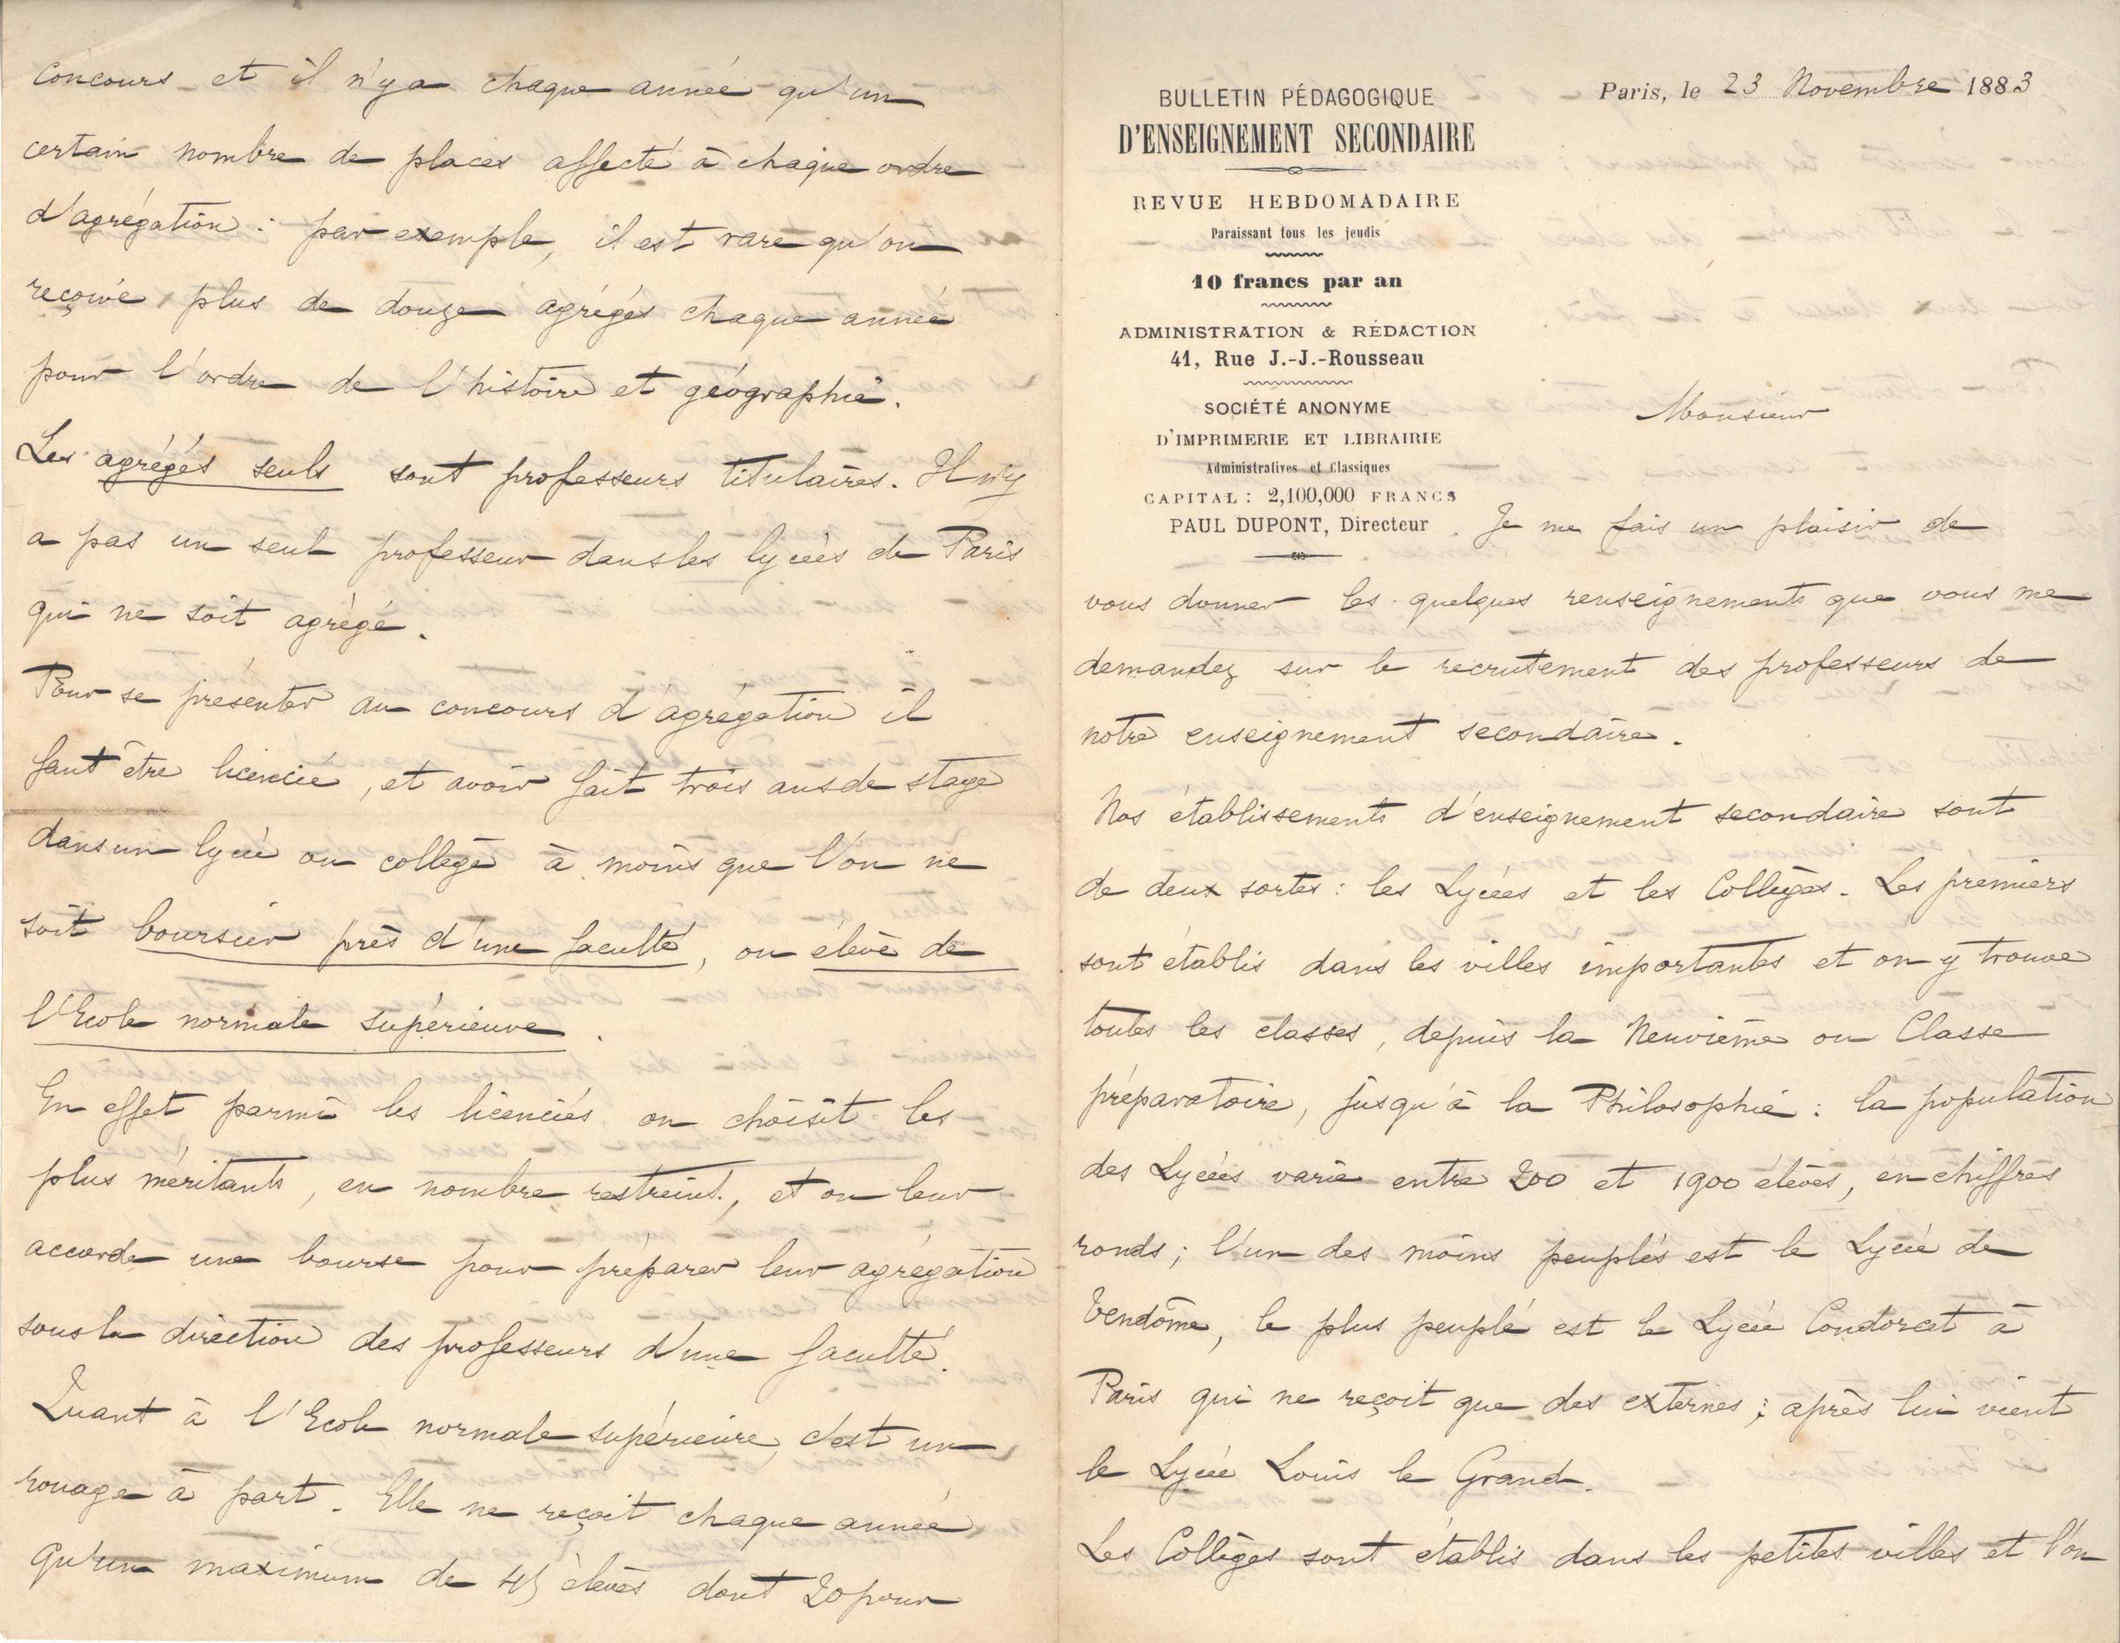 BULLETIN PÉDAGOGIQUE
D'ENSEIGNEMENT SECONDAIRE
REVUE HEBDOMADAIRE
Paraissant tous les jeudis
10 francs par an
ADMINISTRATION & RÉDACTION
41, Rue J.-J.-Rousseau
SOCIÉTÉ ANONYME
D'IMPRIMERIE ET LIBRAIRIE
Administratives et Classiques
CAPITAL : 2,100,000 FRANCS
PAUL DUPONT, Directeur
Paris, le 23 Novembre 1883
Monsieur
Je me fais un plaisir de
vous donner les quelques renseignements que vous me
demandez sur le recrutement des professeurs de
notre enseignement secondaire.
Nos établissements d'enseignement secondaire sont
de deux sortes : les Lycées et les Collèges. Les premiers
sont établis dans les villes importantes et on y trouve
toutes les classes, depuis la Neuvième ou Classe
préparatoire, jusqu'à la Philosophie : la population
des Lycées varie entre 200 et 1900 élèves, en chiffres
ronds ; l'un des moins peuplés est le Lycée de
Vendôme, le plus peuplé est le Lycée Condorcet à
Paris qui ne reçoit que des externes ; après lui vient
le Lycée Louis le Grand.
Les Collèges sont établis dans les petites villes et l'on
concours et il n'y a chaque année qu'un
certain nombre de places affecté à chaque ordre
d'agrégation : par exemple, il est rare qu'on
reçoive plus de douze agrégés chaque année
pour l'ordre de l'histoire et géographie.
Les agrégés seuls sont professeurs titulaires. Il n'y
a pas un seul professeur dans les lycées de Paris
qui ne soit agrégé.
Pour se présenter au concours d'agrégation il
faut être licencié, et avoir fait trois ans de stage
dans un lycée ou collège à moins que l'on ne
soit boursier près d'une faculté, ou élève de
l'Ecole normale supérieure.
En effet parmi les licenciés on choisit les
plus méritants, en nombre restreint, et on leur
accorde une bourse pour préparer leur agrégation
sous la direction des professeurs d'une faculté.
Quant à l'Ecole normale supérieure, c'est un
rouage à part. Elle ne reçoit chaque année
qu'un maximum de 45 élèves dont 20 pour